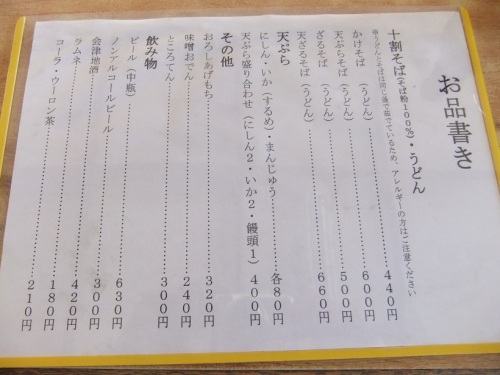 お品書き
十割そば(そば粉100%)・うどん
※うどんとそばは同じ釜で茹でているため、アレルギーの方はご注意ください
かけそば(うどん)………440円
天ぷらそば(うどん)………600円
ざるそば(うどん)………500円
天ざるそば(うどん)………660円
天ぷら
にしん・いか(するめ)・まんじゅう………各80円
天ぷら盛り合わせ(にしん2・いか2・饅頭1)400円
その他
おろしあげもち………320円
味噌おでん………240円
ところてん………300円
飲み物
ビール(中瓶)………630円
ノンアルコールビール………300円
会津地酒………420円
ラムネ………180円
コーラ・ウーロン茶………210円